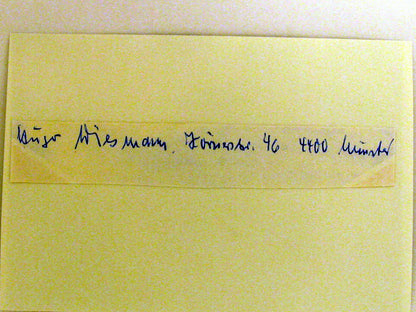 Hugo Wiesmann, Körnerstr. 46 4400 Münster